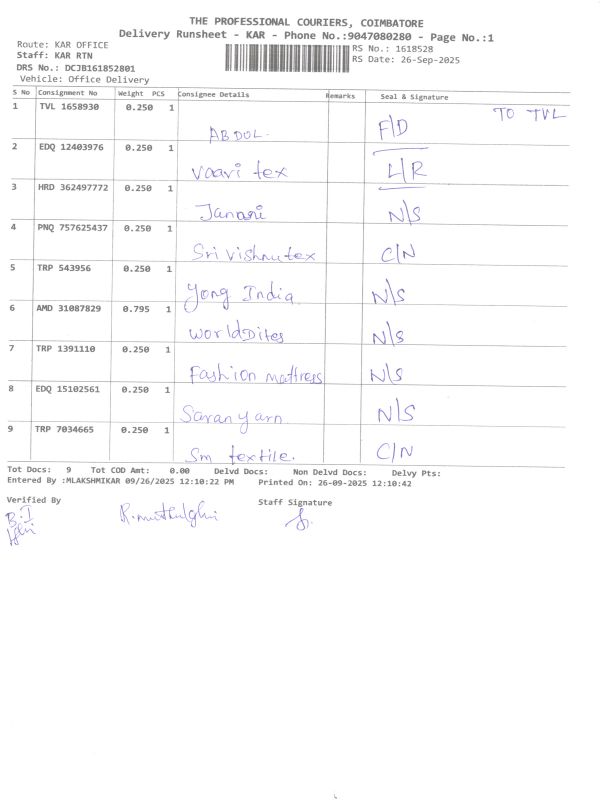 THE PROFESSIONAL COURIERS, COIMBATORE
Delivery Runsheet - KAR - Phone No.:9047080280 - Page No.:1
Route: KAR OFFICE
Staff: KAR RTN
DRS No.: DCJB161852801
Vehicle: Office Delivery
RS No.: 1618528
RS Date: 26-Sep-2025
S No Consignment No Weight PCS Consignee Details Remarks Seal & Signature
TO TVL
1 TVL 1658930 0.250 1 ABDUL. F/D
2 EDQ 12403976 0.250 1 Vaavi tex L/R
3 HRD 362497772 0.250 1 Janani N/S
4 PNQ 757625437 0.250 1 Sri vishnu tex C/N
5 TRP 543956 0.250 1 Yong India N/S
6 AMD 31087829 0.795 1 WorldDites N/S
7 TRP 1391110 0.250 1 Fashion mattress N/S
8 EDQ 15102561 0.250 1 Saran yarn N/S
9 TRP 7034665 0.250 1 Sm textile. C/N
Tot Docs: 9 Tot COD Amt: 0.00 Delvd Docs: Non Delvd Docs: Delvy Pts:
Entered By :MLAKSHMIKAR 09/26/2025 12:10:22 PM Printed On: 26-09-2025 12:10:42
Verified By
Staff Signature